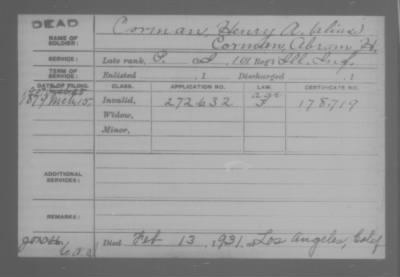 DEAD
NAME OF SOLDIER: Corman, Henry A. (alias)
Cormam, Abram H.
SERVICE: Late rank, P. Co. I, 101 Reg't Ill. Inf.
TERM OF SERVICE: Enlisted , 1 Discharged , 1
DATE OF FILING. CLASS. APPLICATION NO. LAW. CERTIFICATE NO.
1879 Mch 15. Invalid, 272632 178,719
Widow,
Minor,
ADDITIONAL SERVICES:
REMARKS:
Died Feb 13, 1931, at Los Angeles, Calif